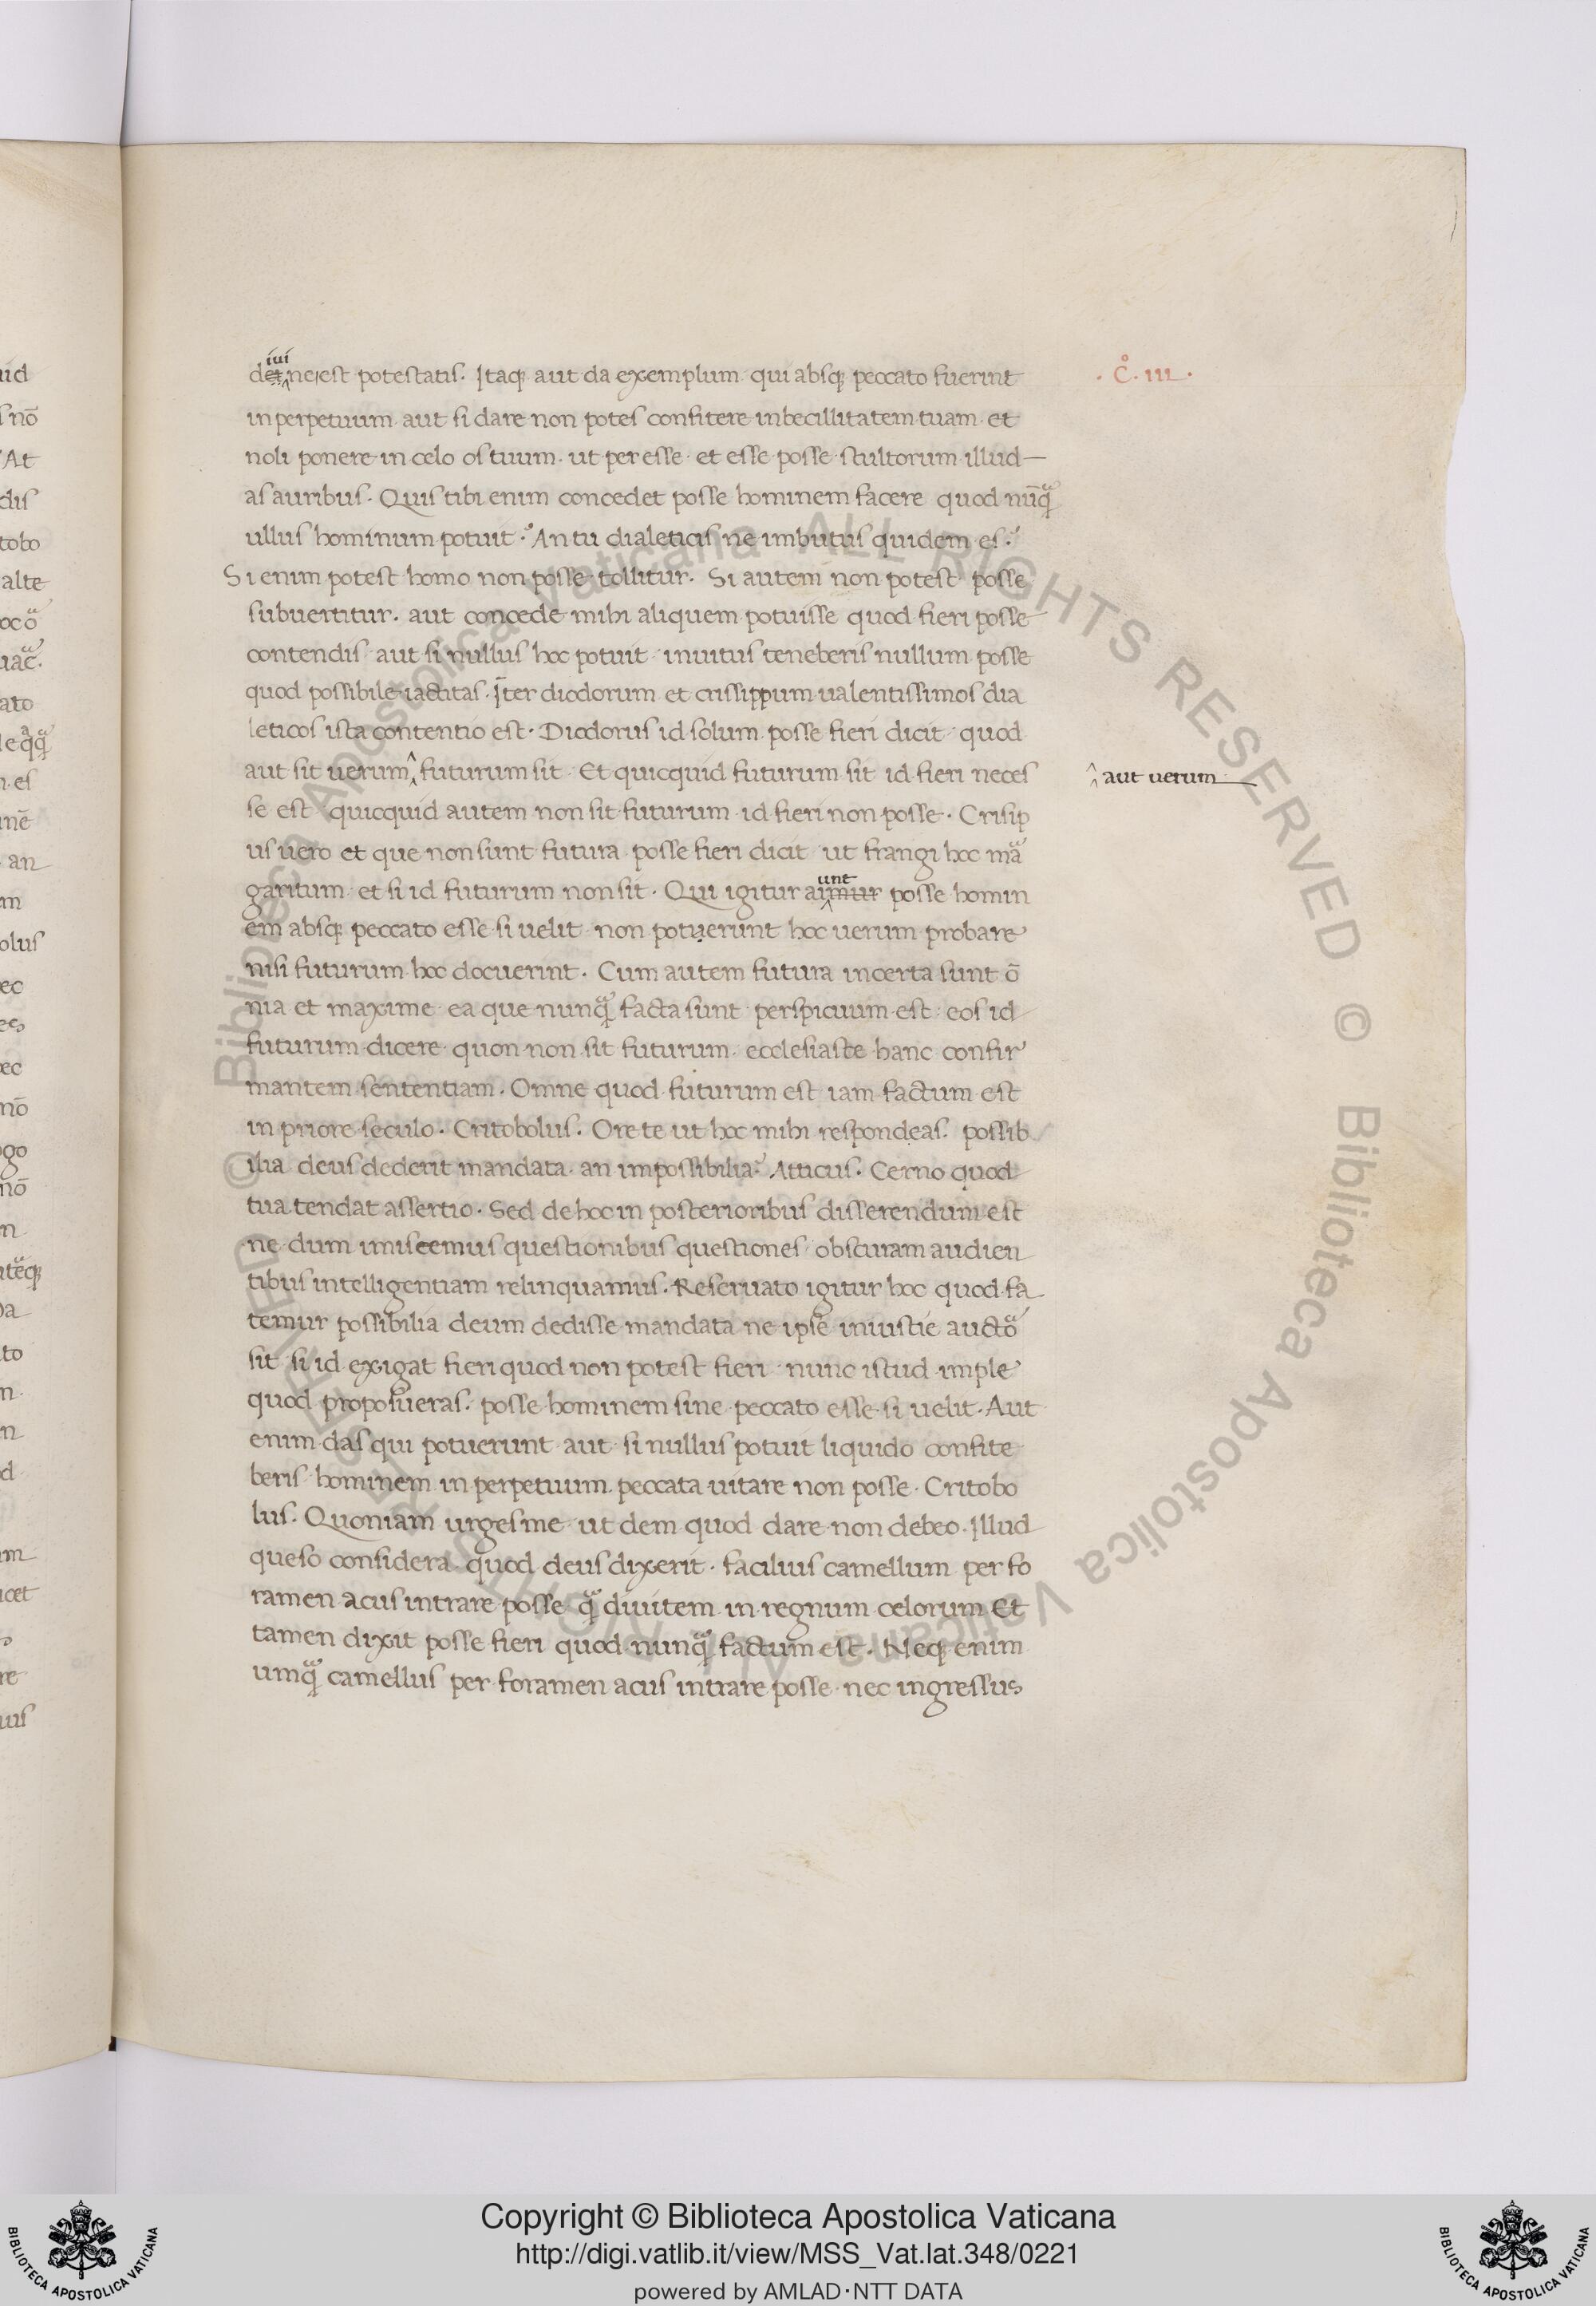 iui
detne est potestatis. Itaq; aut da exemplum qui absq; peccato fuerint
. C̊. III.
in perpetuum. aut si dare non potes confitere inbecillitatem tuam. et
noli ponere in celo os tuum. ut per esse et esse posse stultorum illud
as auribus. Quis tibi enim concedet posse hominem facere quod nūq̃
ullus hominum potuit? An tu dialeticis ne imbutus quidem es?
Si enim potest homo non posse tollitur. Si autem non potest posse
subuertitur. aut concede mihi aliquem potuisse quod fieri posse
contendis aut si nullus hoc potuit inuitus teneberis nullum posse
quod possibile iactitas. Īter diodorum et crissippum ualentissimos dia
leticos ista contentio est. Diodorus id solum posse fieri dicit quod
aut sit uerum ^ futurum sit. Et quicquid futurum sit id fieri neces
^ aut uerum
se est quicquid autem non sit futurum id fieri non posse. Crisip
us uero et que non sunt futura posse fieri dicit ut frangi hoc mã
garitum et si id futurum non sit. Qui igitur aimur posse homin
unt
em absq; peccato esse si uelit non potuerunt hoc uerum probare
nisi futurum hoc docuerint. Cum autem futura incerta sunt ō
nia et maxime ea que nunq̃ facta sunt perspicuum est eos id
futurum dicere quon non sit futurum. ecclesiaste hanc confir
mantem sententiam. Omne quod futurum est iam factum est
in priore seculo. Critobolus. Ore te ut hoc mihi respondeas. possib
ilia deus dederit mandata an impossibilia? Atticus. Cerno quod
tua tendat assertio. Sed de hoc in posterioribus disserendum est
ne dum imiscemus questionibus questiones obscuram audien
tibus intelligentiam relinquamus. Reseruato igitur hoc quod fa
temur possibilia deum dedisse mandata ne ipse iniustie auctõ
sit si id exigat fieri quod non potest fieri nunc istud imple
quod proposueras. posse hominem sine peccato esse si uelit. Aut
enim das qui potuerunt aut si nullus potuit liquido confite
beris hominem in perpetuum peccata uitare non posse. Critobo
lus. Quoniam urges me ut dem quod dare non debeo. Illud
queso considera quod deus dixerit. facilius camellum per fo
ramen acus intrare posse q̃ diuitem in regnum celorum Et
tamen dixit posse fieri quod nunq̃ factum est. Neq; enim
umq̃ camellus per foramen acus intrare posse nec ingressus
© Biblioteca Apostolica Vaticana ALL RIGHTS RESERVED © Biblioteca Apostolica Vaticana ALL RIGHTS RESERVED
Copyright © Biblioteca Apostolica Vaticana
http://digi.vatlib.it/view/MSS_Vat.lat.348/0221
powered by AMLAD·NTT DATA
BIBLIOTECA APOSTOLICA VATICANA
BIBLIOTECA APOSTOLICA VATICANA